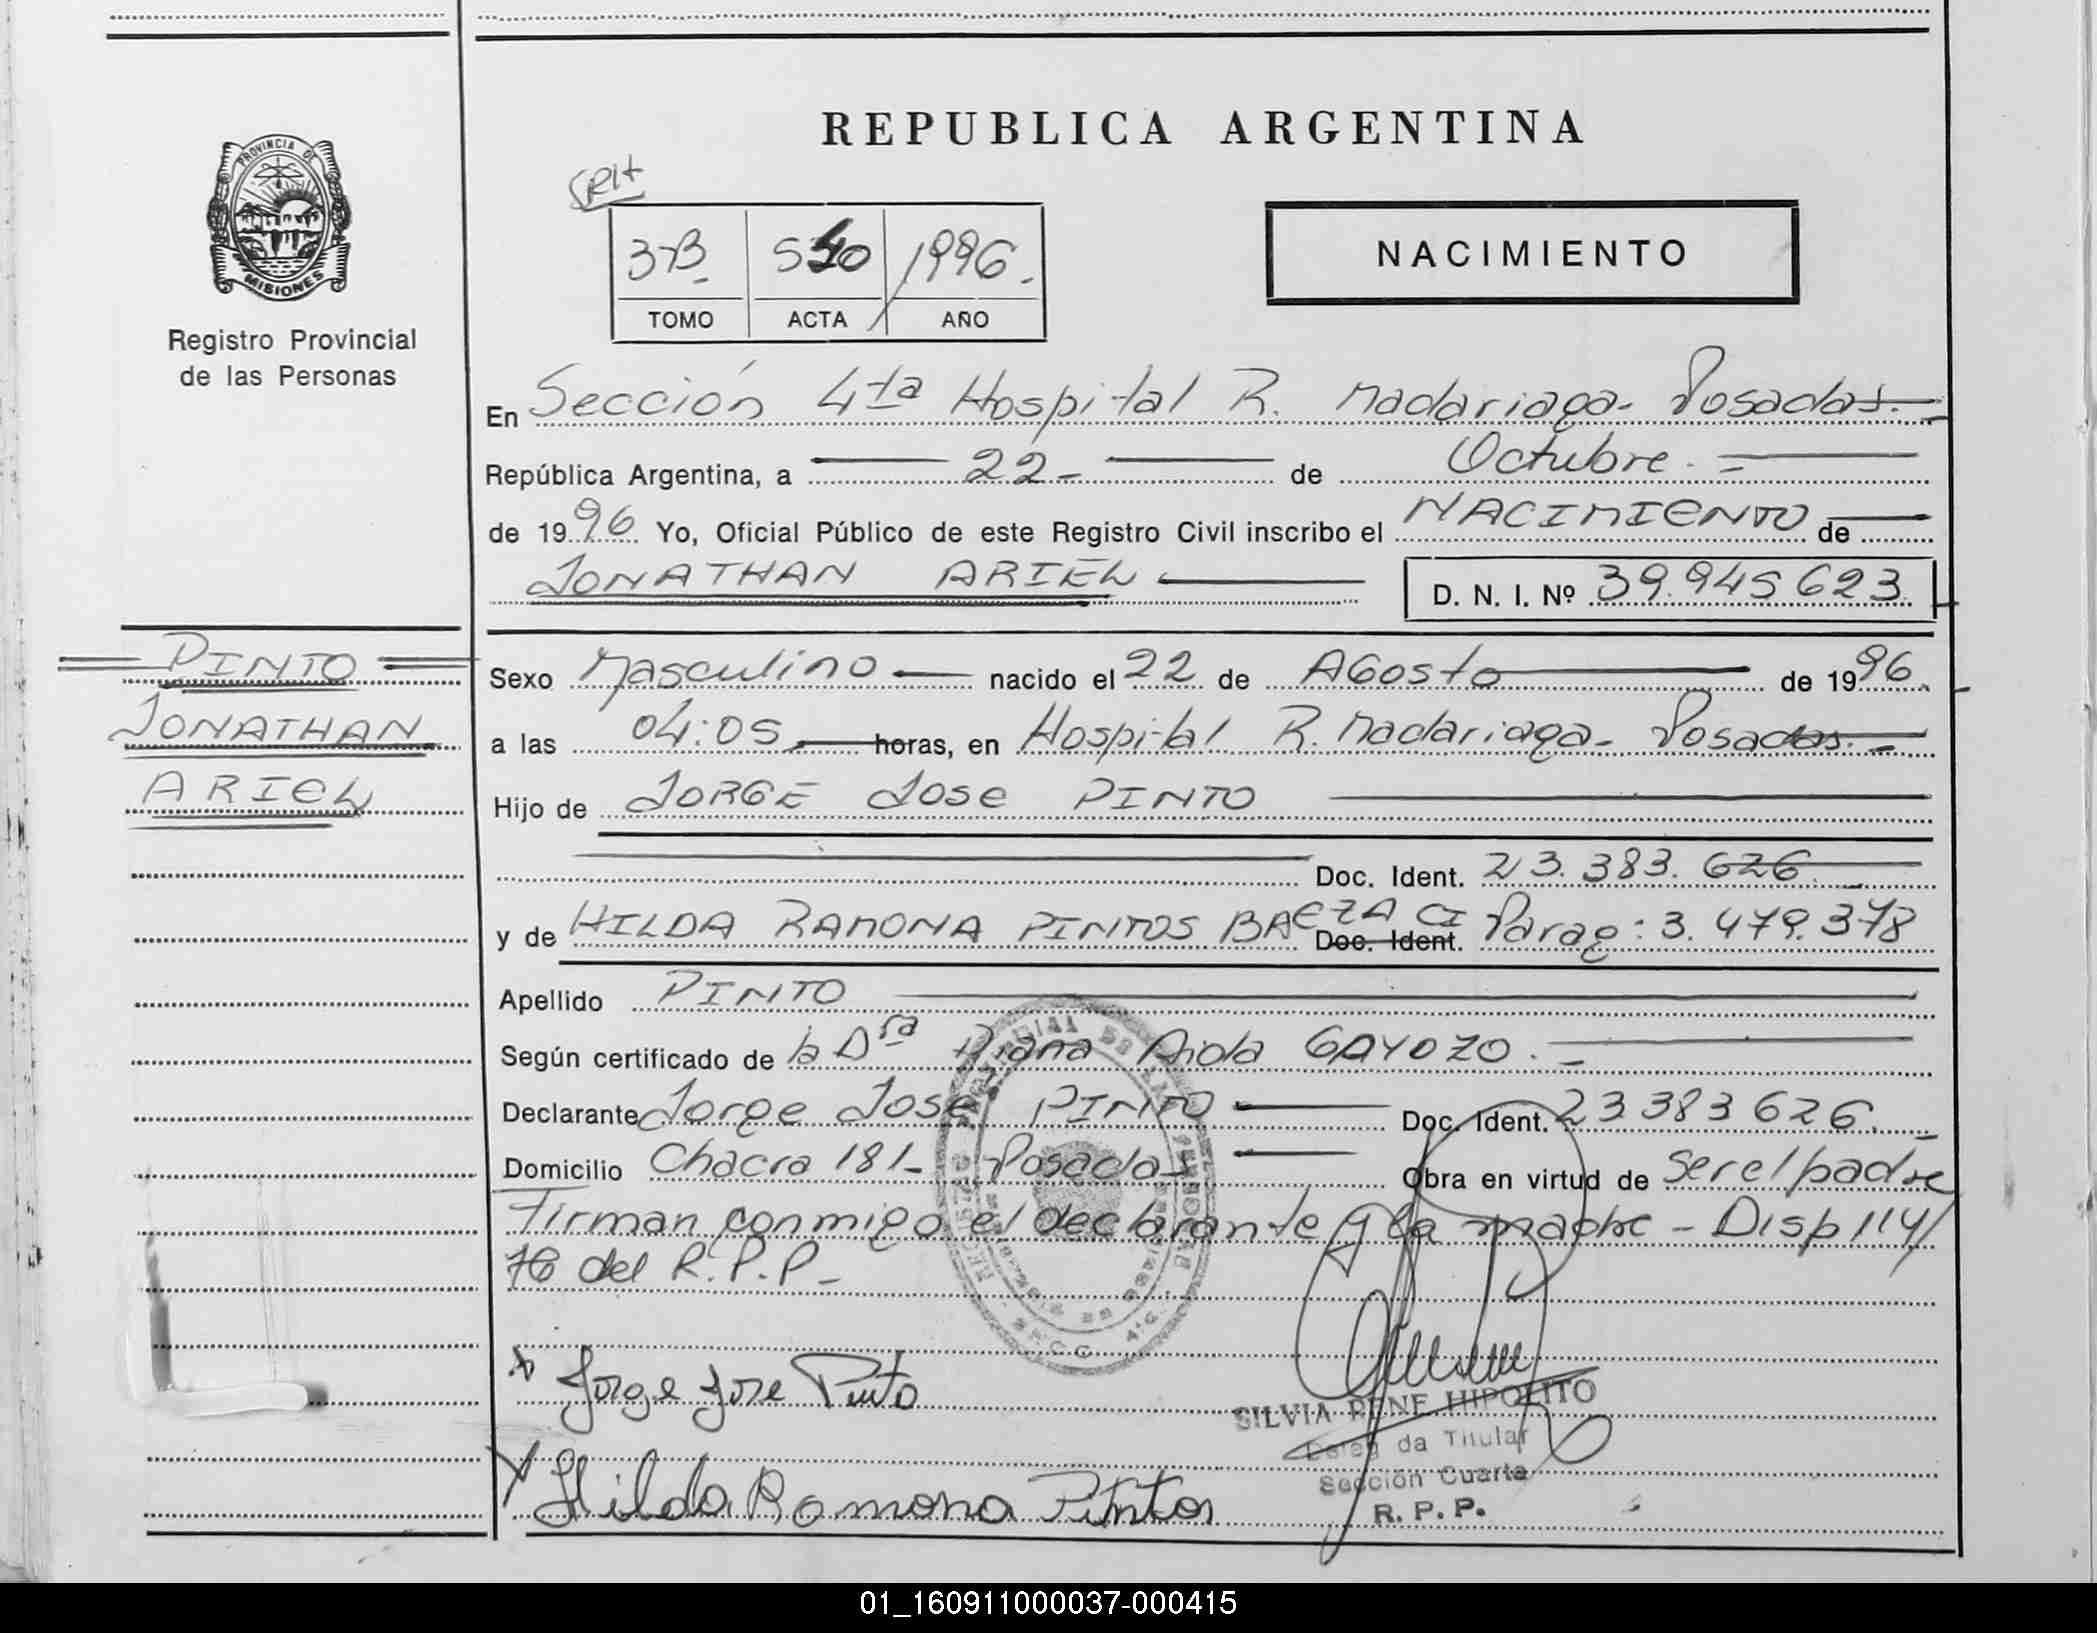 REPUBLICA ARGENTINA
PROVINCIA DE
MISIONES
Registro Provincial
de las Personas
3-B 1996.
TOMO ACTA AÑO
NACIMIENTO
En Sección 4ta Hospital R. Madariaga - Posadas. -
República Argentina, a 22 - de Octubre. -
de 1996 Yo, Oficial Público de este Registro Civil inscribo el NACIMIENTO de
JONATHAN ARIEL D. N. I. Nº 39.945623
PINTO
JONATHAN
ARIEL
Sexo Masculino nacido el 22 de AGosto de 1996.
a las 04:05 horas, en Hospital R. Madariaga - Posadas. -
Hijo de JORGE Jose PINTO
Doc. Ident. 23.383.626. -
y de HILDA RAMONA PINTOS BAEZA CI Doc. Ident. Parag: 3.479.378
Apellido PINTO
Según certificado de la Dra Diana Aida GAYOZO. -
Declarante Jorge José PINTO Doc. Ident. 23383626. -
Domicilio Chacra 181 - Posadas Obra en virtud de ser el padre
Firman conmigo el declarante y la madre - Disp 114/
76 del R. P. P. -
Jorge Jose Pinto
SILVIA RENE HIPOLITO
Deleg da Titular
Sección Cuarta
R. P. P.
Hilda Ramona Pintos
01_160911000037-000415